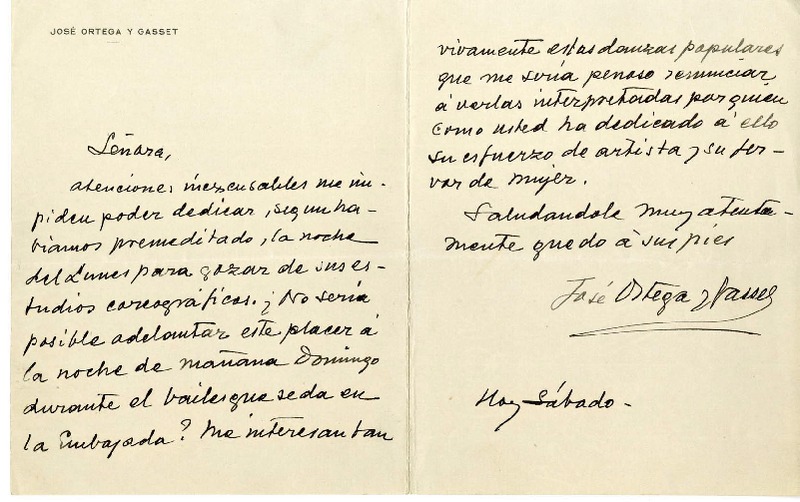 JOSÉ ORTEGA Y GASSET
Señora,
atenciones inexcusables me im-
piden poder dedicar, segun ha-
viamos premeditado, la noche
del Lunes para gozar de sus es-
tudios coreográficos. ¿No seria
posible adelantar este placer á
la noche de mañana Domingo
durante el baile que se da en
la Embajada? Me interesan tan
vivamente estas danzas populares
que me seria penoso renunciar
á verlas interpretadas por quien
como usted ha dedicado á ello
su esfuerzo de artista y su fer-
vor de mujer.
Saludandole muy atenta-
mente quedo á sus pies
José Ortega y Gasset
Hoy Sábado -